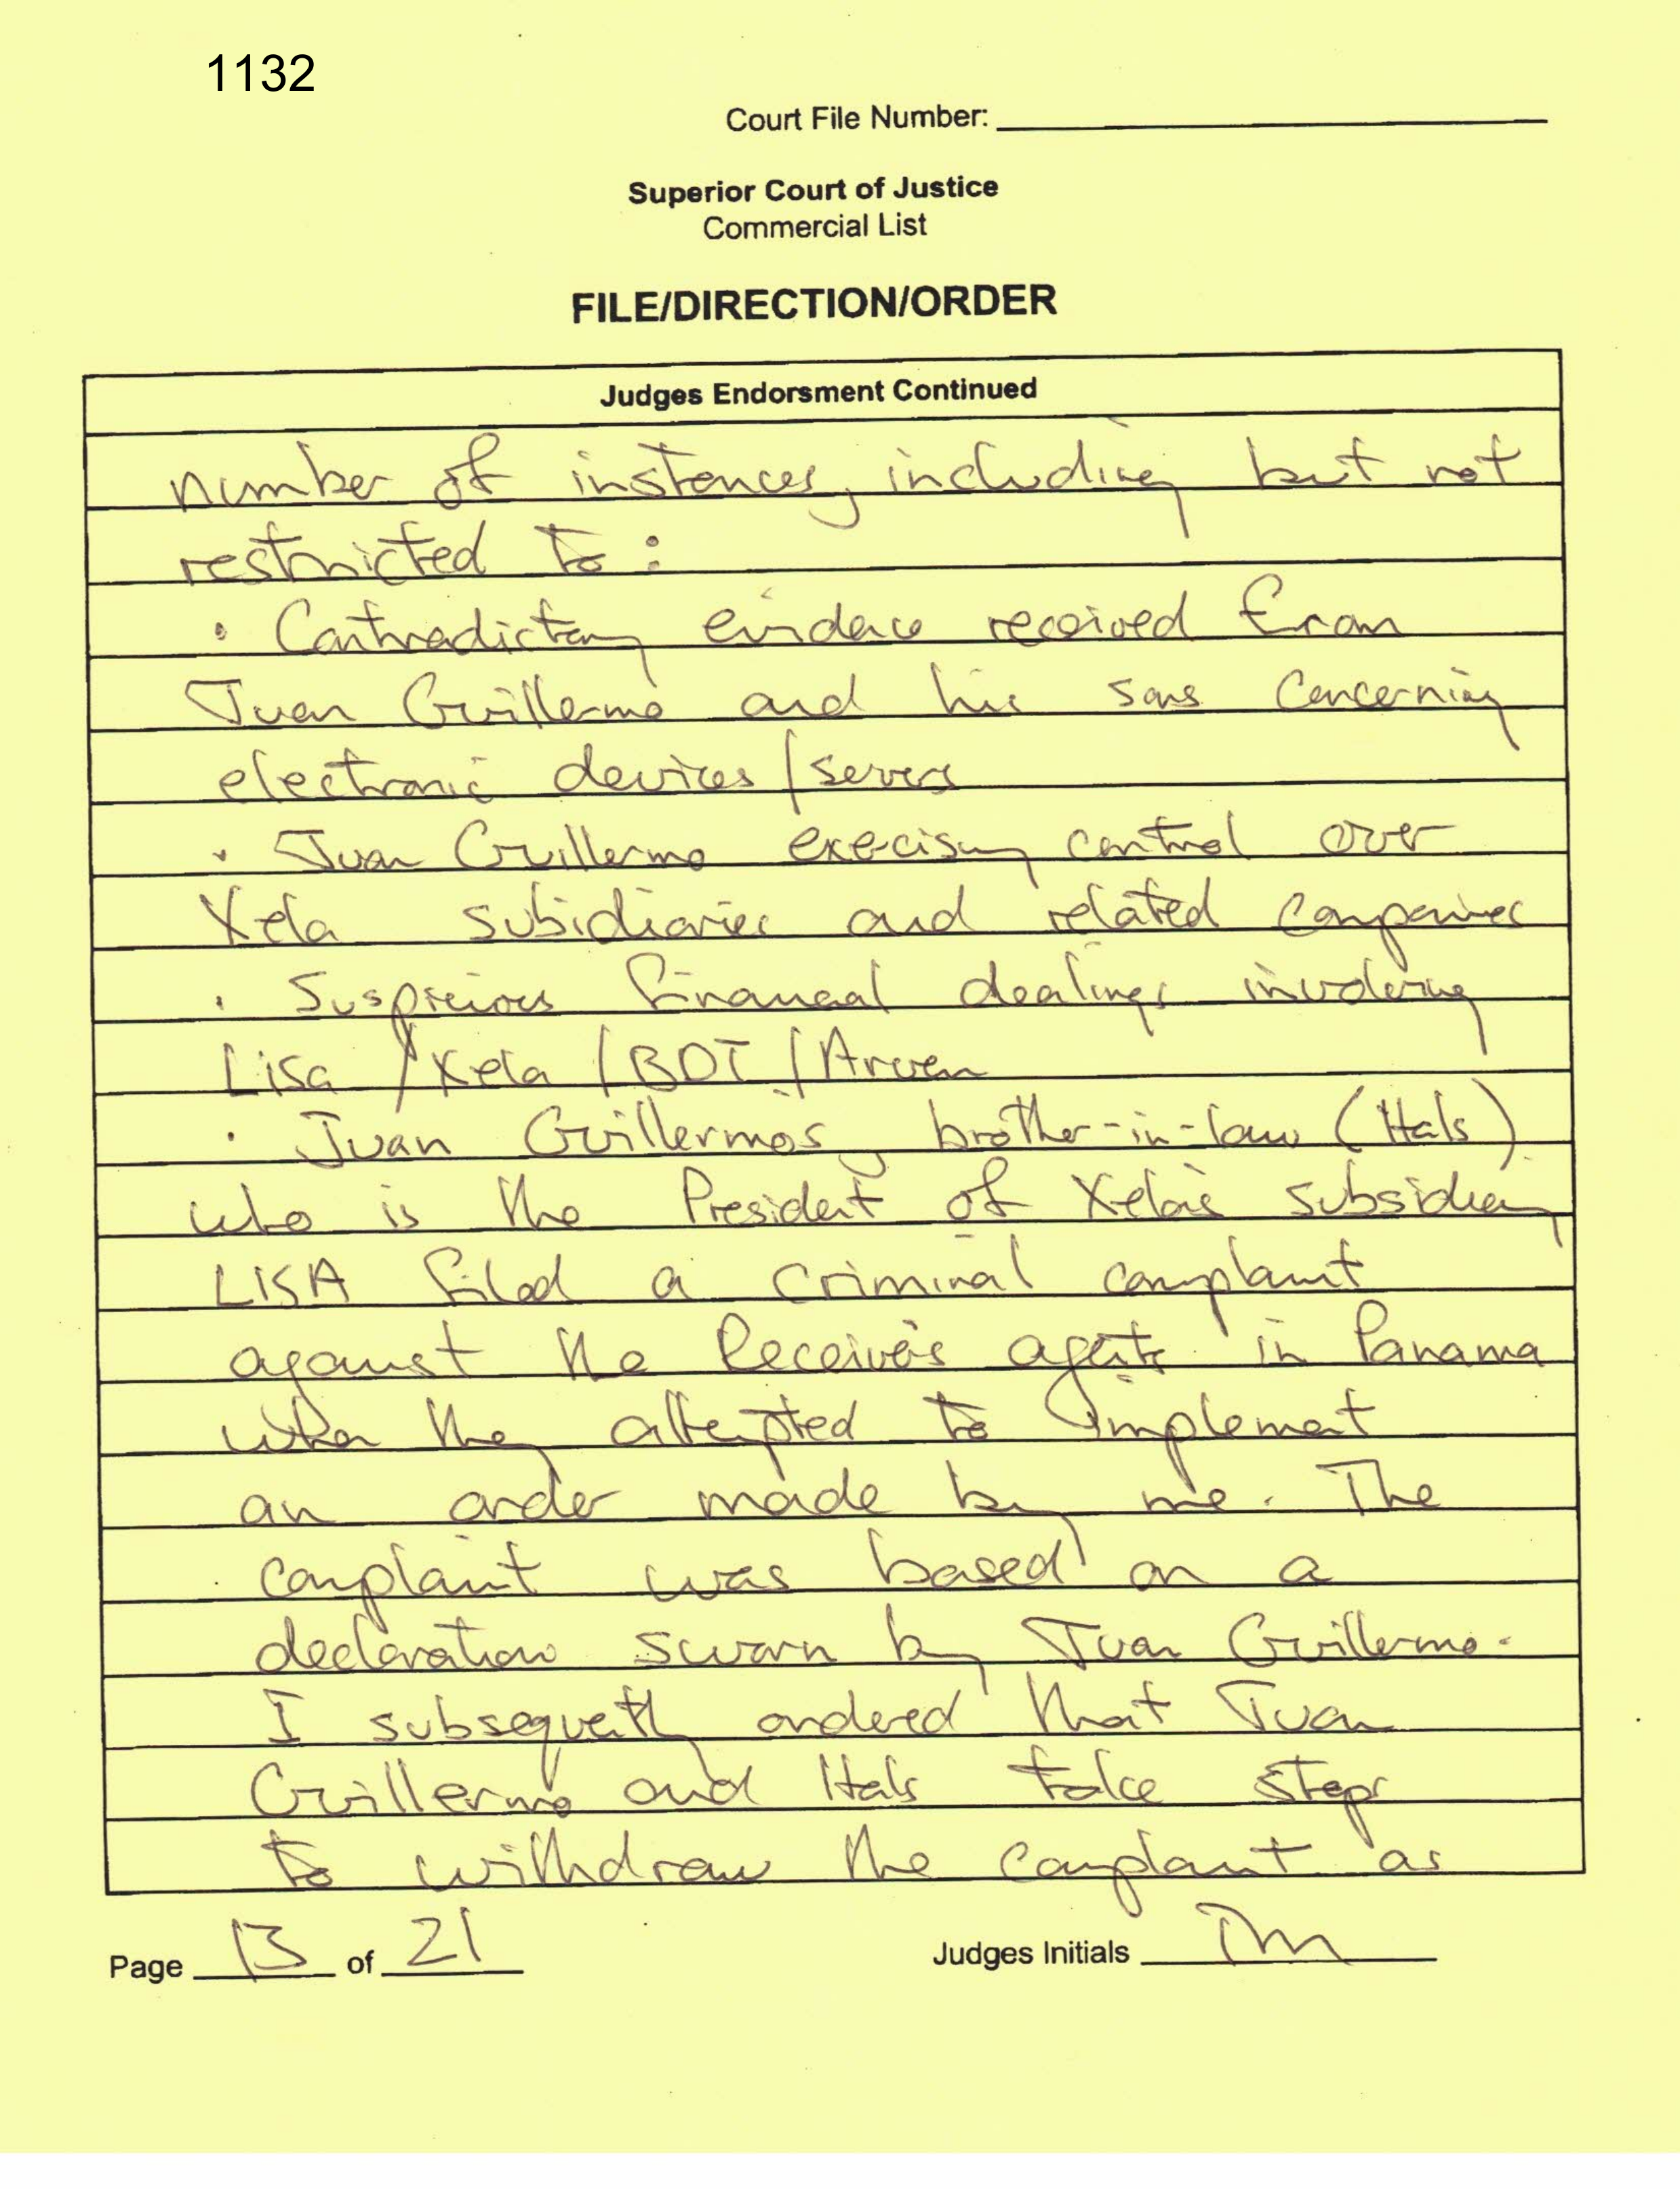 1132
Court File Number:
Superior Court of Justice
Commercial List
FILE/DIRECTION/ORDER
Judges Endorsment Continued
number of instances, including but not
restricted to :
• Contradictory evidence received from
Juan Guillermo and his sons concerning
electronic devices / servers
• Juan Guillermo exercising control over
Xela subidiaries and related companies
• Suspicious financial dealings involving
Lisa / Xela / BDT / Arven
• Juan Guillermo's brother-in-law (Hals)
who is the President of Xela's subsidiary
LISA filed a criminal complaint
against the Receiver's agents in Panama
when they attempted to implement
an order made by me. The
complaint was based on a
declaration sworn by Juan Guillermo.
I subsequently ordered that Juan
Guillermo and Hals take steps
to withdraw the complaint as
Page 13 of 21
Judges Initials